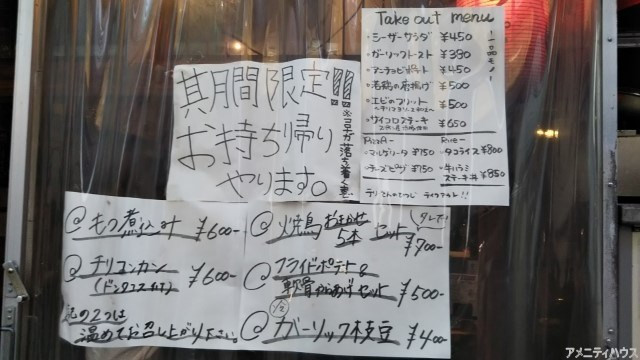 期間限定!!
お持ち帰り
やります。
※コロナが落ち着くまで
Take out menu
・シーザーサラダ ¥450
・ガーリックトースト ¥390
・アンチョビポテト ¥450
・若鶏の唐揚げ ¥500
・エビのフリット ¥500
・サイコロステーキ ¥650
Pizza-
・マルゲリータ ¥750
・チーズピザ ¥750
Rice-
・タコライス ¥800
・牛ハラミステーキ丼 ¥850
@もつ煮込み ¥600-
@チリコンカン ¥600-
(ドンタコス付き)
上の2つは
温めてお召し上がり下さい。
@焼鳥おまかせ5本セット ¥700-
(タレで!)
@フライドポテト&
軟骨からあげセット ¥500-
@ガーリック枝豆 ¥400-
アメニティハウス